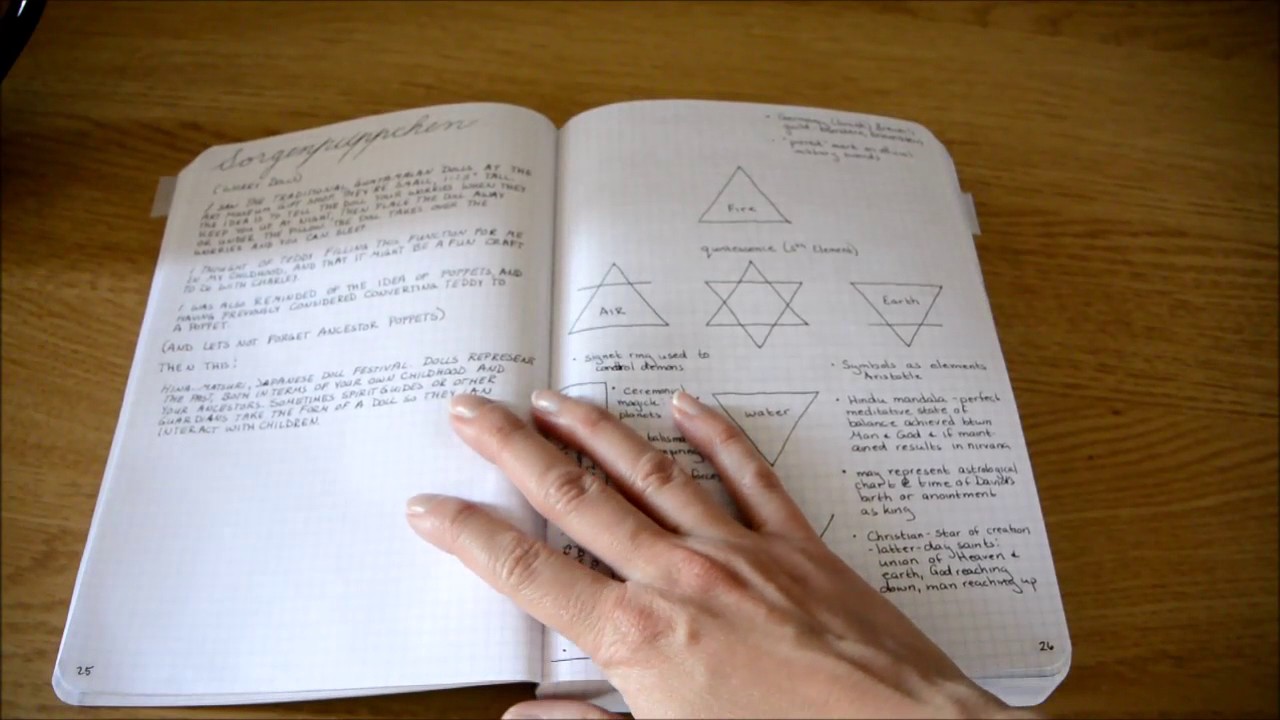 Sorgenpüppchen
(WORRY DOLL)
I SAW THE TRADITIONAL GUATEMALAN DOLLS AT THE
ART MUSEUM GIFT SHOP. THEY'RE SMALL, TALL.
THE IDEA IS TO TELL THE DOLL YOUR WORRIES WHEN THEY
KEEP YOU UP AT NIGHT, THEN PLACE THE DOLL AWAY
OR UNDER THE PILLOW. THE DOLL TAKES OVER THE
WORRIES AND YOU CAN SLEEP.
I THOUGHT OF TEDDY FILLING THIS FUNCTION FOR ME
IN MY CHILDHOOD, AND THAT IT MIGHT BE A FUN CRAFT
TO DO WITH CHARLEY.
I WAS ALSO REMINDED OF THE IDEA OF POPPETS, AND
HAVING PREVIOUSLY CONSIDERED CONVERTING TEDDY TO
A POPPET.
(AND LETS NOT FORGET ANCESTOR POPPETS)
THEN THIS:
HINA-MATSURI, JAPANESE DOLL FESTIVAL. DOLLS REPRESENT
THE PAST, BOTH IN TERMS OF YOUR OWN CHILDHOOD AND
YOUR ANCESTORS. SOMETIMES SPIRIT GUIDES OR OTHER
GUARDIANS TAKE THE FORM OF A DOLL SO THEY CAN
INTERACT WITH CHILDREN.
25
guild
military
Fire
quintessence (5th Element)
AIR
Earth
• signet ring used to
control demons
• Ceremonial
magick:
planets
water
forces
• Symbols as elements
Aristotle
• Hindu mandala - perfect
meditative state of
balance achieved btwn
Man & God & if maint-
ained results in nirvana
• may represent astrological
chart @ time of David's
birth or anointment
as king
• Christian - star of creation
- latter-day saints:
union of Heaven &
earth, God reaching
down, man reaching up
26